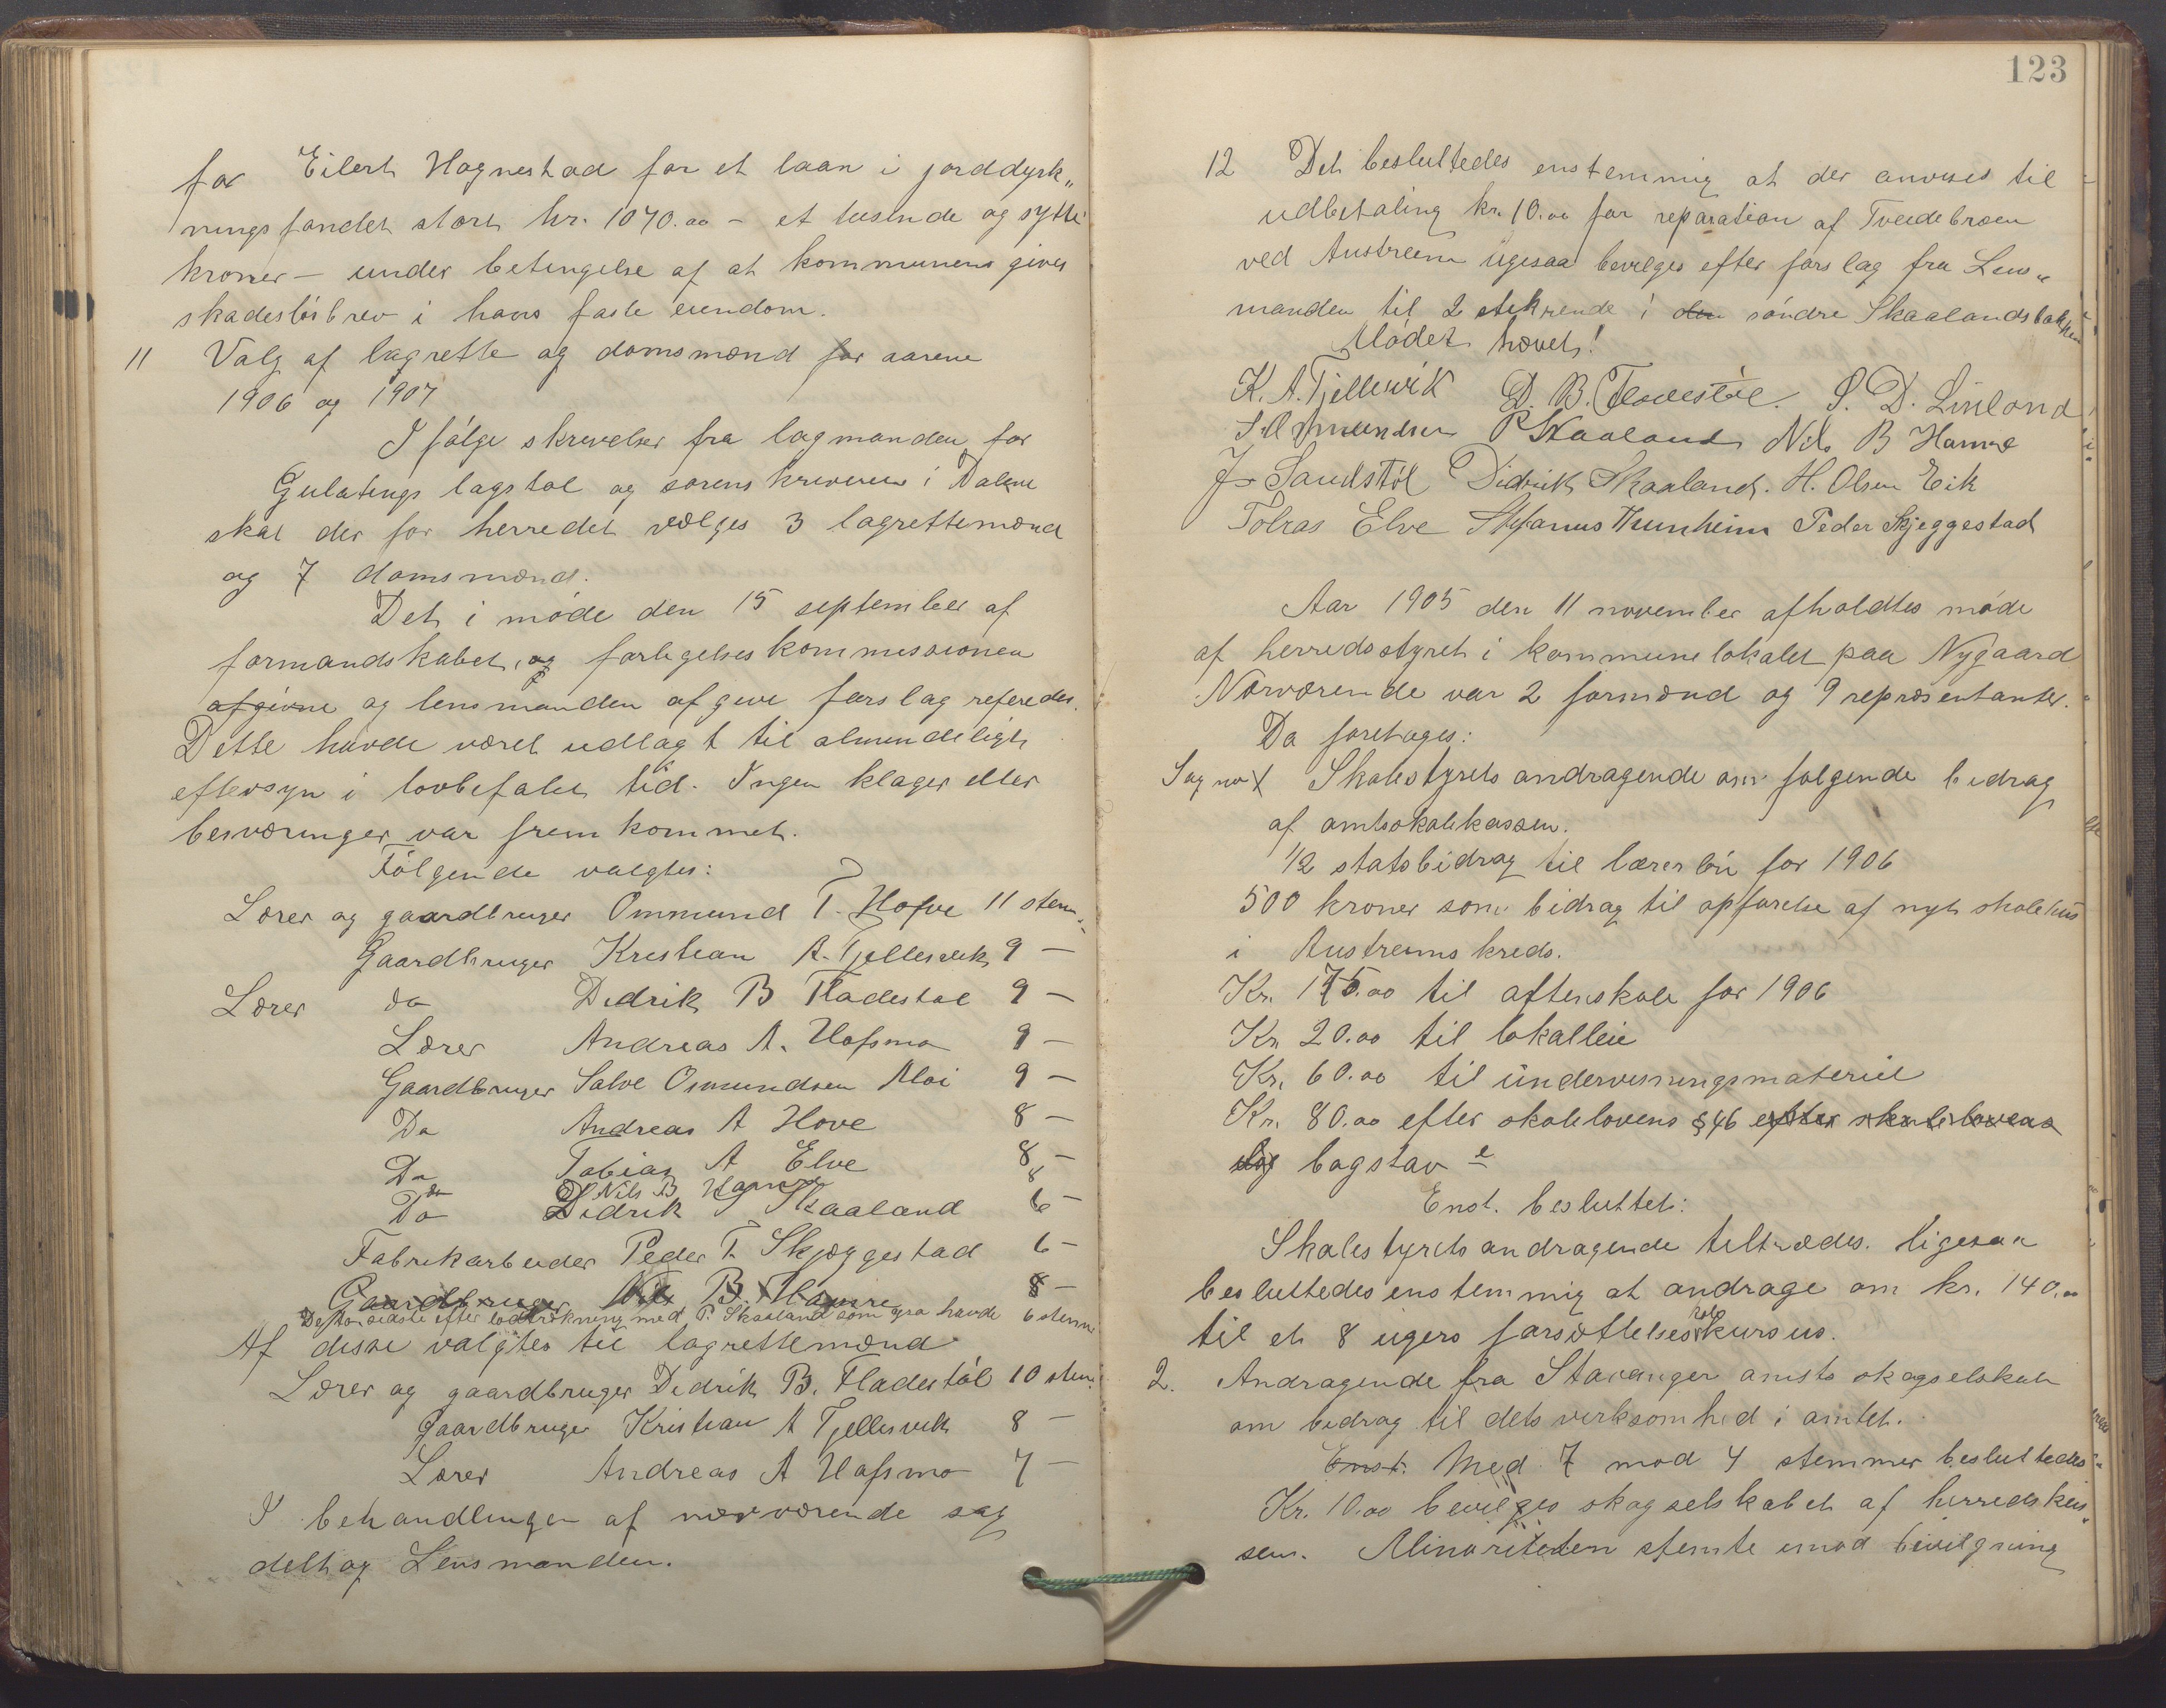 for Eilert Hognestad for et laan i jorddyrk„
ningsfondet stort kr. 1070.00 – et tusinde og sytti
kroner – under betingelse af at kommunens gives
skadesløsbrev i hans faste eiendom.
11 Valg af lagrette og domsmænd for aarene
1906 og 1907
I følge skrivelser fra lagmanden for
Gulatings lagstol og sorenskriveren i Dalene
skal der for herredet vælges 3 lagrettemænd
og 7 domsmænd.
Det i møde den 15 september af
formandskabet, og forligelseskommissionen
afgivne og lensmanden afgivne forslag referedes.
Dette havde været udlagt til almindeligt
eftersyn i lovbefalet tid. Ingen klager eller
besværinger var fremkommet.
Følgende valgtes:
Lærer og gaardbruger Ommund T. Hofve 11 stem„
Gaardbruger Kristian A. Tjellesvik 9 –
Lærer do Didrik B Fladestøl 9 –
Lærer Andreas A. Hofsmo 9 –
Gaardbruger Salve Osmundsen Moi 9 –
Do Andreas A Hove 8 –
Do Tobias A Elve 8 –
do Nils B Hamre 8
Do Didrik T Skaaland 6 –
Fabrikarbeider Peder T. Skjæggestad 6 –
Gaardbruger Nils B. Hamre 8 –
De to sidste efter lodtrækning med P. Skaaland som ogsa havde 6 stemmer
Af disse valgtes til lagrettemænd
Lærer og gaardbruger Didrik B. Fladestøl 10 stem.
Gaardbruger Kristian A Tjellesvik 8 –
Lærer Andreas A Hofsmo 7 –
I behandlingen af nærværende sag
deltog Lensmanden.
123
12 Det besluttedes enstemmig at der anvises til
udbetaling kr. 10.00 for reparation af Tveidebroen
ved Austreim ligesaa bevilges efter forslag fra Lens„
manden til 2 stikrende i den søndre Skaalandsbakken
Mødet hævet!
K. A. Tjellesvik D. B. Fladestøl. S. D. Linland
S. Osmundsen P Skaaland Nils B Hamre
J. Sandstøl Didrik Skaaland. H. Olsen Eik
Tobias Elve Stefanus Kunheim Peder Skjeggestad
Aar 1905 den 11 november afholdtes møde
af herredsstyret i kommunelokalet paa Nygaard
Nærværende var 2 formænd og 9 repræsentanter.
Da foretoges:
Sag no 1 Skolestyrets andragende om følgende bidrag
af amtsskolekassen.
1/2 statsbidrag til lærerløn for 1906
500 kroner som bidrag til opførelse af nyt skolehus
i Austreims kreds.
Kr. 175.00 til aftenskole for 1906
Kr 20.00 til lokalleie
Kr. 60.00 til undervisningsmateriel
Kr. 80.00 efter skolelovens § 46 efter skolelovens
bogstav e
Enst. besluttet:
Skolestyrets andragende tiltrædes. ligesaa
besluttedes enstemmig at andrage om kr. 140.00
til et 8 ugers forsættelseskursus.
2. Andragende fra Stavanger amts skogselskab
om bidrag til dets virksomhed i amtet.
Enst. Med 7 mod 4 stemmer besluttedes
Kr. 10.00 bevilges skogselskabet af herredskas„
sen. Minoriteten stemte imod bevilgning